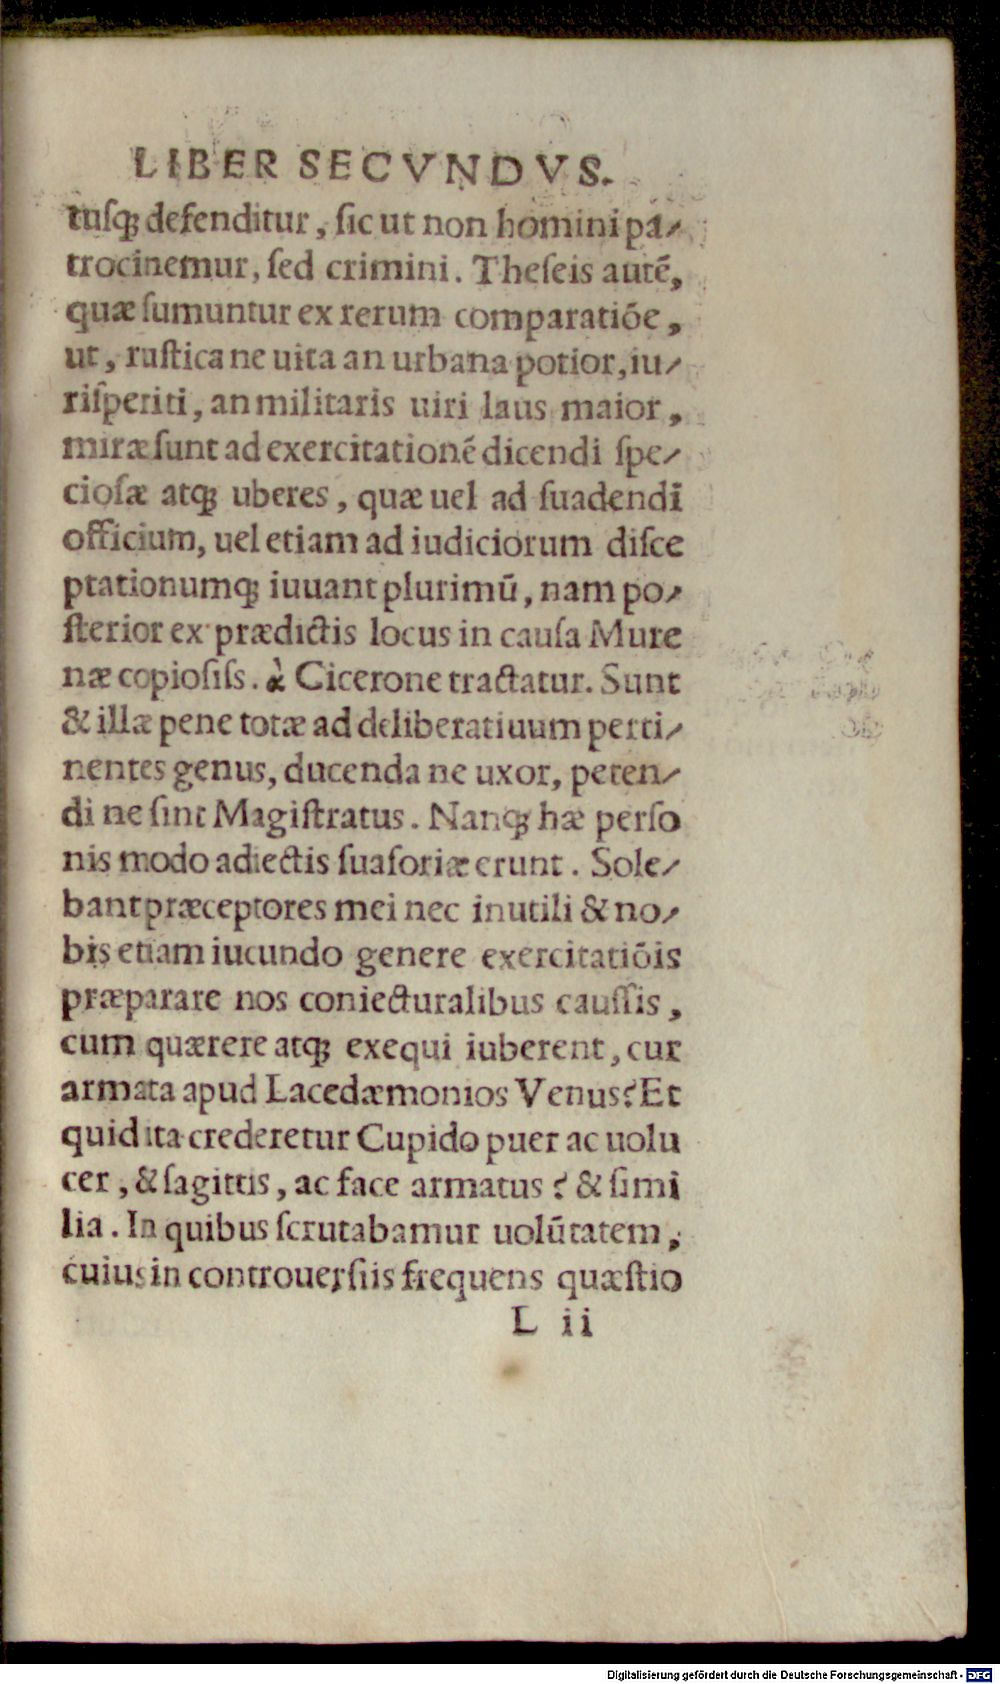 LIBER SECVNDVS.
tusq; defenditur, ſic ut non homini pa⸗
trocinemur, ſed crimini. Theſeis autē,
quæ ſumuntur ex rerum comparatiōe,
ut, ruſtica ne uita an urbana potior, iu⸗
riſperiti, an militaris uiri laus maior,
miræ ſunt ad exercitationē dicendi ſpe⸗
cioſæ atq; uberes, quæ uel ad ſuadendi
officium, uel etiam ad iudiciorum diſce
ptationumq; iuuant plurimū, nam po⸗
ſterior ex prædictis locus in cauſa Mure
næ copioſiſs. à Cicerone tractatur. Sunt
& illæ pene totæ ad deliberatiuum perti⸗
nentes genus, ducenda ne uxor, peten⸗
di ne ſint Magiſtratus. Nanq; hæ perſo
nis modo adiectis ſuaſoriæ erunt. Sole⸗
bant præceptores mei nec inutili & no⸗
bis etiam iucundo genere exercitatiōis
præparare nos coniecturalibus cauſſis,
cum quærere atq; exequi iuberent, cur
armata apud Lacedæmonios Venus? Et
quid ita crederetur Cupido puer ac uolu
cer, & ſagittis, ac face armatus? & ſimi
lia. In quibus ſcrutabamur uolūtatem,
cuius in controuerſiis frequens quæſtio
L ii
Digitalisierung gefördert durch die Deutsche Forschungsgemeinschaft - DFG